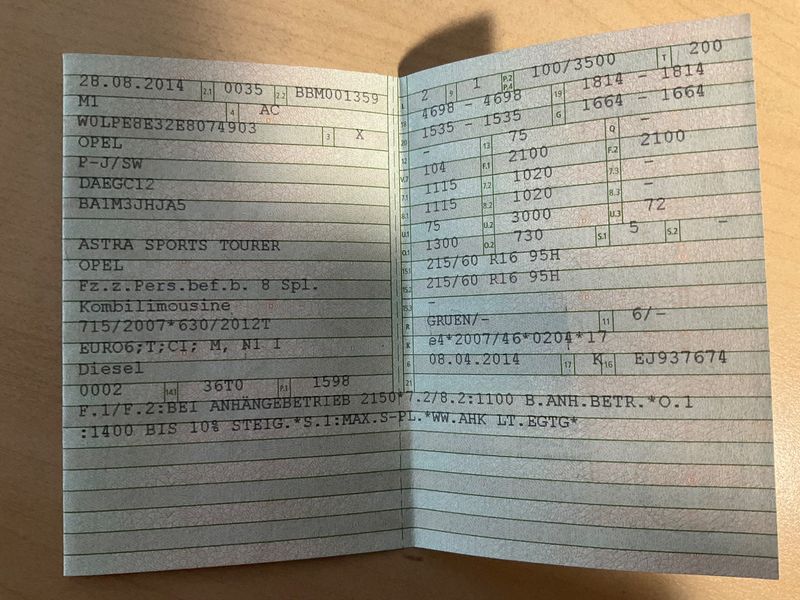 28.08.2014 2.1 0035 2.2 BBM001359
M1 4 AC
W0LPE8E32E8074903 3 X
OPEL
P-J/SW
DAEGC12
BA1M3JHJA5
ASTRA SPORTS TOURER
OPEL
Fz.z.Pers.bef.b. 8 Spl.
Kombilimousine
715/2007*630/2012T
EURO6;T;CI; M, N1 I
Diesel
0002 14.1 36T0 P.1 1598
L 2 9 1 P.2 P.4 100/3500 T 200
18 4698 - 4698 19 1814 - 1814
20 1535 - 1535 G 1664 - 1664
12 - 13 75 Q -
V.7 104 F.1 2100 F.2 2100
7.1 1115 7.2 1020 7.3 -
8.1 1115 8.2 1020 8.3 -
U.1 75 U.2 3000 U.3 72
O.1 1300 O.2 730 S.1 5 S.2 -
15.1 215/60 R16 95H
15.2 215/60 R16 95H
15.3 -
R GRUEN/- 11 6/-
K e4*2007/46*0204*17
6 08.04.2014 17 K 16 EJ937674
21
F.1/F.2:BEI ANHÄNGEBETRIEB 2150*7.2/8.2:1100 B.ANH.BETR.*O.1
:1400 BIS 10% STEIG.*S.1:MAX.S-PL.*WW.AHK LT.EGTG*